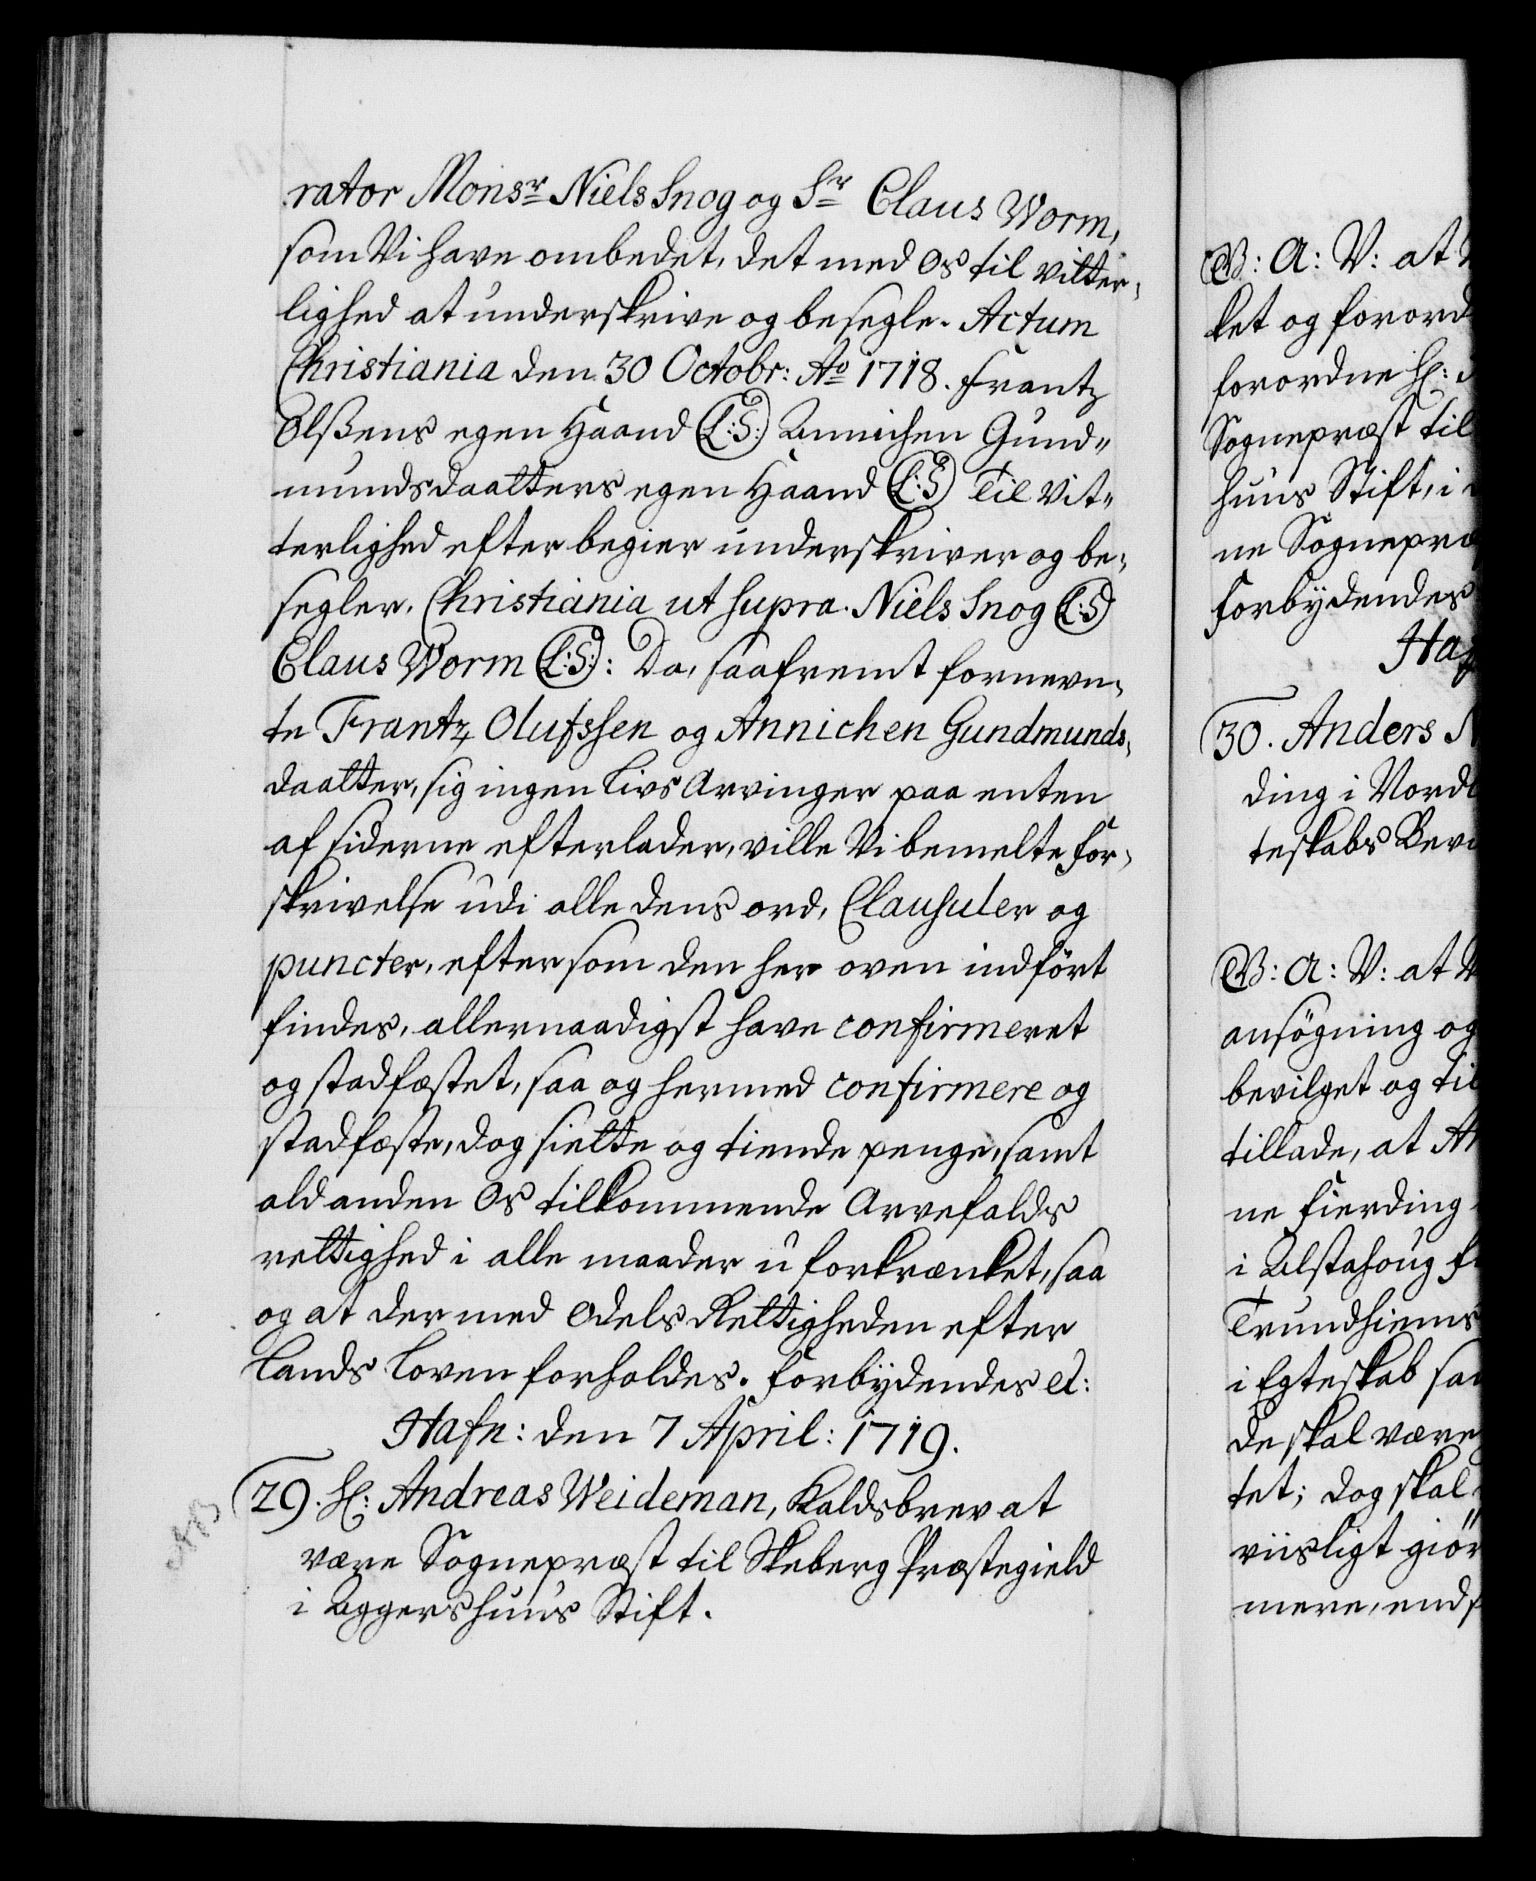 rator Monsr Niels Snog og Sr Claus Worm,
som Vi have ombedet, det med Os til vitter-
lighed at underskrive og besegle. Actum
Christiania den 30 Octobr: Ao 1718. Frantz
Olßens egen Haand (L:S:) Annichen Gund"
mundsdaatters egen Haand (L:S) Til Vit"
terlighed efter begier underskriver og be-
segler. Christiania ut supra. Niels Snog (L:S)
Claus Worm (L:S:): Da, saafremt fornevn-
te Frantz Olufssen og Annichen Gundmunds-
daatter, sig ingen Livs Arvinger paa enten
af siderne efterlader, ville Vi bemelte For-
skrivelse udi alle dens ord, Clausuler og
puncter, eftersom den her oven indført
findes, allernaadigst have confirmeret
og stadfæstet, saa og hermed confirmere og
stadfæste, dog siette og tiende penge, samt
ald anden Os tilkommende Arvefalds
rettighed i alle maader uforkrænket, saa
og at der med Odels Rettigheden efter
Lands Loven forholdes. Forbydendes et:
Hafn: den 7 April: 1719.
29. Hr: Andreas Weideman, Kaldsbrev at
være Sognepræst til Skeberg Præstegield
i Aggershuus Stift.
NB
G: A: V: at
ket og forord
forordne Hr:
Sognepræst til
huus Stift, i
ne Sognepræ
Forbydendes
Haf
30. Anders
ding i Vord
teskabs Bev
G: A: V: at
ansøgning og
bevilget og til
tillade, at An
ne Fierding
i Alstahoug F
Trundhiems
i Egteskab sa
de skal være
tet; dog skal
viisligt giør
mere, end